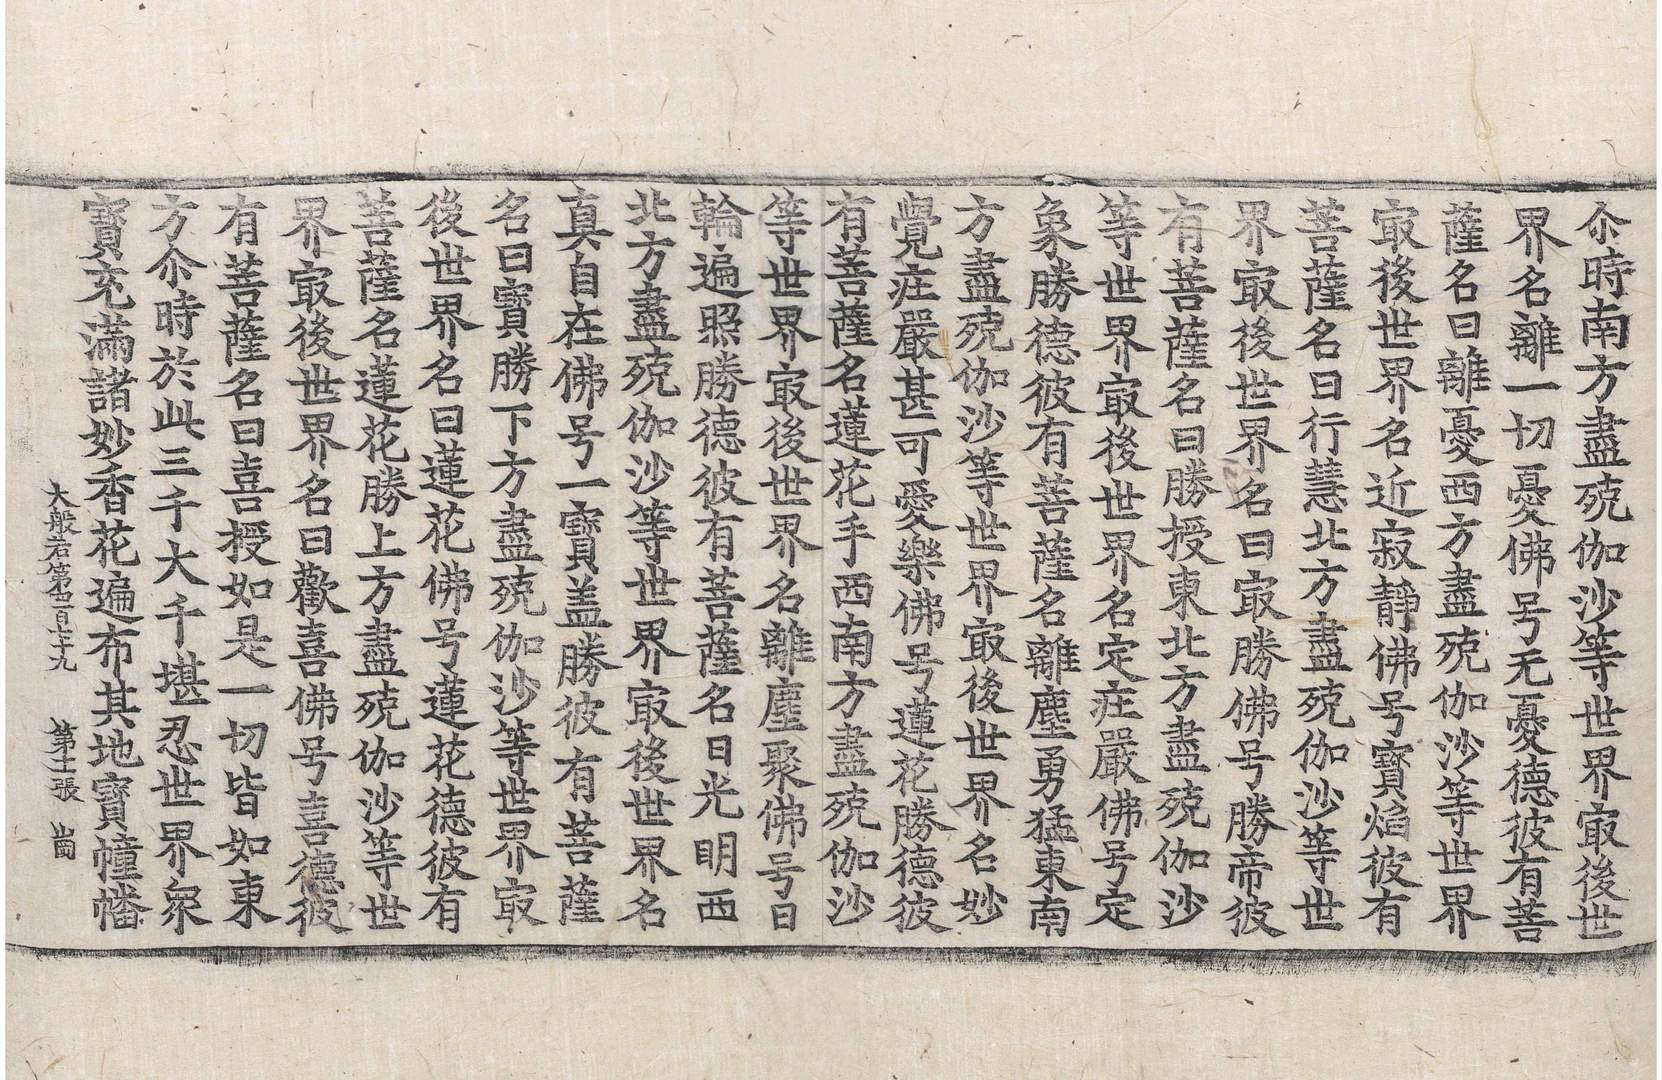 尒時南方盡殑伽沙等世界冣後世
界名離一切憂佛号无憂德彼有菩
薩名曰離憂西方盡殑伽沙等世界
冣後世界名近寂靜佛号寶焰彼有
菩薩名曰行慧北方盡殑伽沙等世
界冣後世界名曰冣勝佛号勝帝彼
有菩薩名曰勝授東北方盡殑伽沙
等世界冣後世界名定庄嚴佛号定
象勝德彼有菩薩名離塵勇猛東南
方盡殑伽沙等世界冣後世界名妙
覺庄嚴甚可愛樂佛号蓮花勝德彼
有菩薩名蓮花手西南方盡殑伽沙
等世界冣後世界名離塵聚佛号日
輪遍照勝德彼有菩薩名日光明西
北方盡殑伽沙等世界冣後世界名
真自在佛号一寶盖勝彼有菩薩
名曰寶勝下方盡殑伽沙等世界冣
後世界名曰蓮花佛号蓮花德彼有
菩薩名蓮花勝上方盡殑伽沙等世
界冣後世界名曰歡喜佛号喜德彼
有菩薩名曰喜授如是一切皆如東
方尒時於此三千大千堪忍世界衆
寶充滿諸妙香花遍布其地寶幢幡
大般若第四百七十九 第十一張 崗